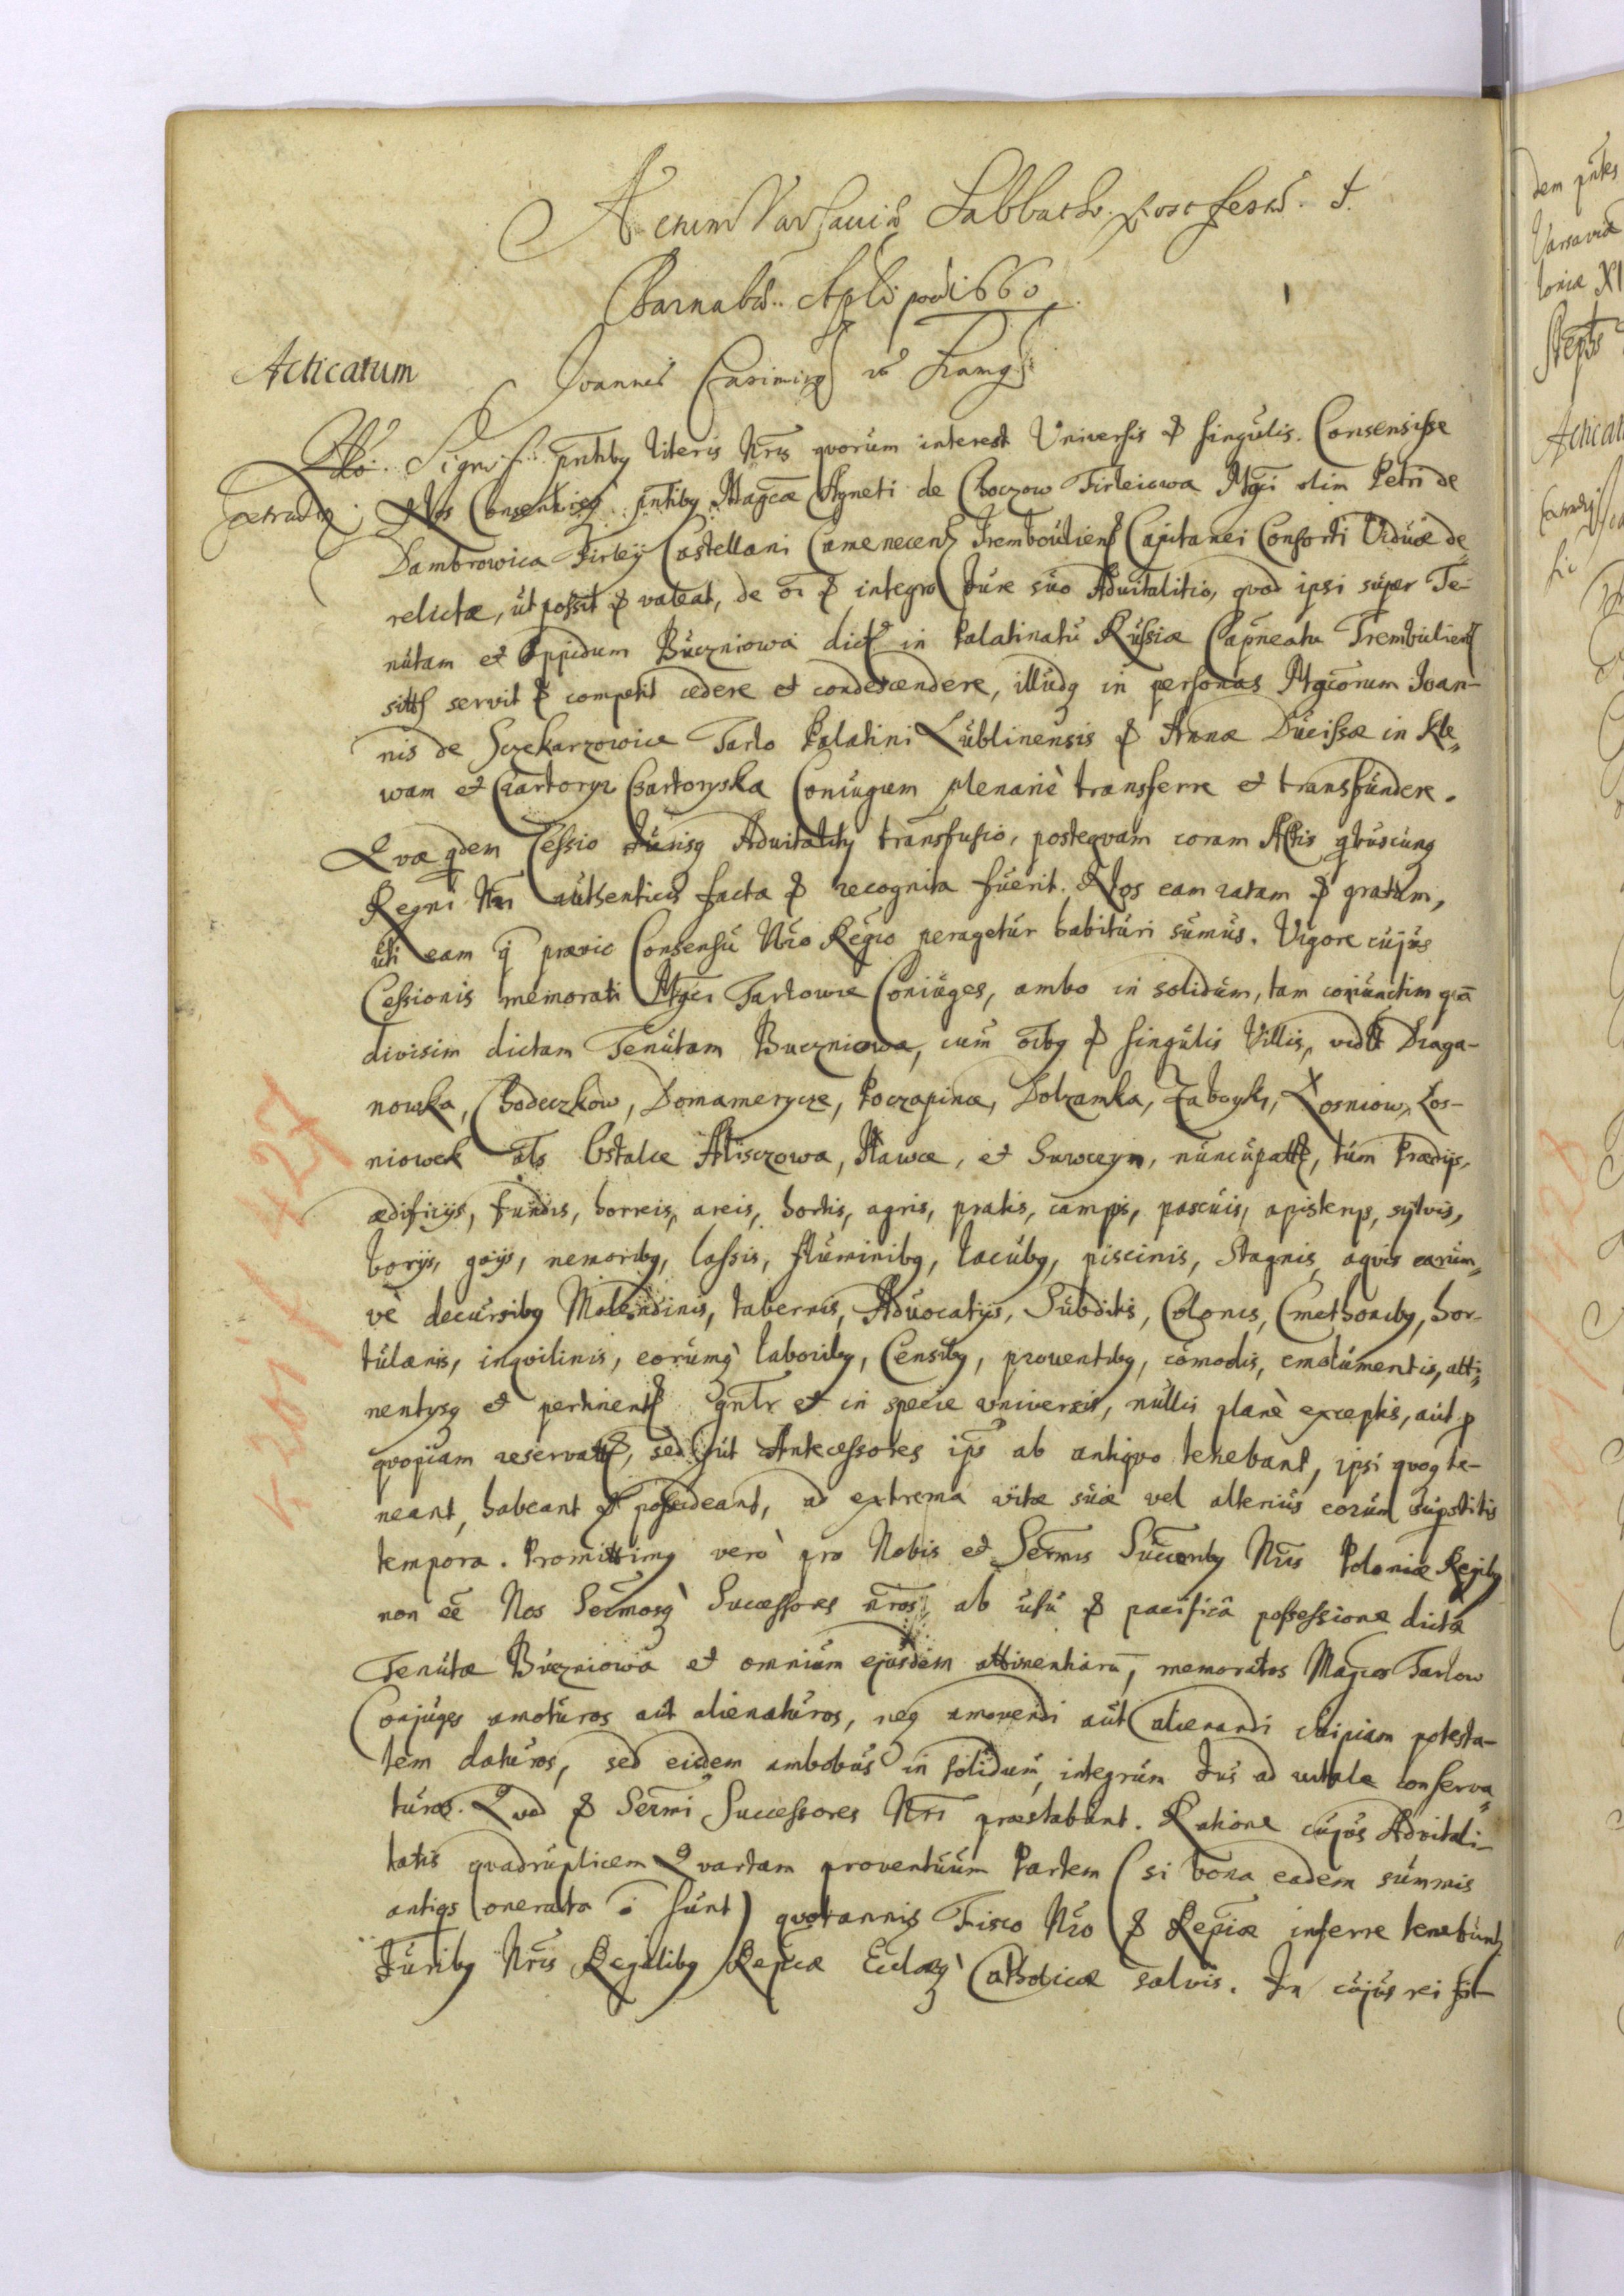 Actum Varsaviæ Sabbatho post festũ S.
Barnabæ Apli 1660
Acticatum
Joannes Casimirus
Signif. pntibq literis Nris qvorum interest Universis & singulis. Consensisse
Nos Consentireq pntibq Magcæ Agneti de Choczow Firleiowa Mgci olim Petri de
Dambrowica Firleÿ Castellani Camenecens Tremboulien Capitanei Consorti Viduæ de
relictæ, ut possit & valeat, de & integro Jure suo Advitalitio, qvod ipsi super Te-
nutam et Oppidum Buczniowa dict in Palatinatu Russiæ Capneatu Trembulien
sitt servit & competit cedere et condescendere, illudq in personas Mgcorum Joan-
nis de Sczekarzowice Tarlo Palatini Lublinensis & Annæ Ducissæ in Kle-
wam et Czartorysk Czartoryska Coniugum plenariè transferre et transfundere.
Qvæ qdem Cessio Jurisq Advitalitij transfusio, posteqvam coram Actis qbuscunq
Regni Nri authenticis facta & recognita fuerit. Nos eam ratam & gratam,
uti eam q prævio Consensu Nro Regio peragetur habituri sumus. Vigore cujus
Cessionis memorati Mgci Tarlowie Coniuges, ambo in solidum, tam coniunctim qm̃
divisim dictam Tenutam Buczniowa, cum oibq & singulis Villis, vidt Draga-
nowka, Chodeczkow, Domamerycze, Poczapince, Dolzamka, Zaboyki, Losniow, Los-
niowek als Ostalce Alisczowa, Nawce, et Surwceyn, nuncupatt, tum Prædijs,
ædificijs, fundis, horreis, areis, hortis, agris, pratis, campis, pascuis, apisterijs, sylvis,
borijs, gaijs, nemoribq, lassis, fluminibq, lacubq, piscinis, Stagnis, aqvis earum-
vè decursibq Molendinis, tabernis, Advocatijs, Subditis, Colonis, Cmethonibq, hor-
tulanis, inqvilinis, eorumq laboribq, Censibq, proventibq, comodis, emolumentis, atti-
nentijsq et pertinent gnlr et in specie universis, nullis planè exceptis, aut p
qvopiam reservatt, sed sut Antecessores ips ab antiqvo tenebant, ipsi qvoq te-
neant, habeant & possideant, ad extrema vitæ suæ vel alterius eorum supstitis
tempora. Promittimq verò pro Nobis et Sermis Succoribq Nris Poloniæ Regibq
non ee Nos Sermosq Successores nros, ab usu & pacifica possessione dictæ
Tenutæ Buczniowa et omnium ejusdem attinentiaru, memoratos Magcos Tarlow
Conjuges amoturos aut alienaturos, neq amovendi aut alienandi cuipiam potesta-
tem daturos, sed eisdem ambobus in solidum, integrum Jus ad vitale conserva-
turos. Qvod & Sermi Successores Nri præstabunt. Ratione cujus Advitali-
tatis qvadruplicem Qvartam proventuum Partem (si bona eadem summis
antiqs onerata n sunt) qvotannis Fisco Nro & Reipcæ inferre tenebunt
Juribq Nris Regalibq Reipcæ Ecclæq Catholicæ salvis. In cujus rei fi-
427